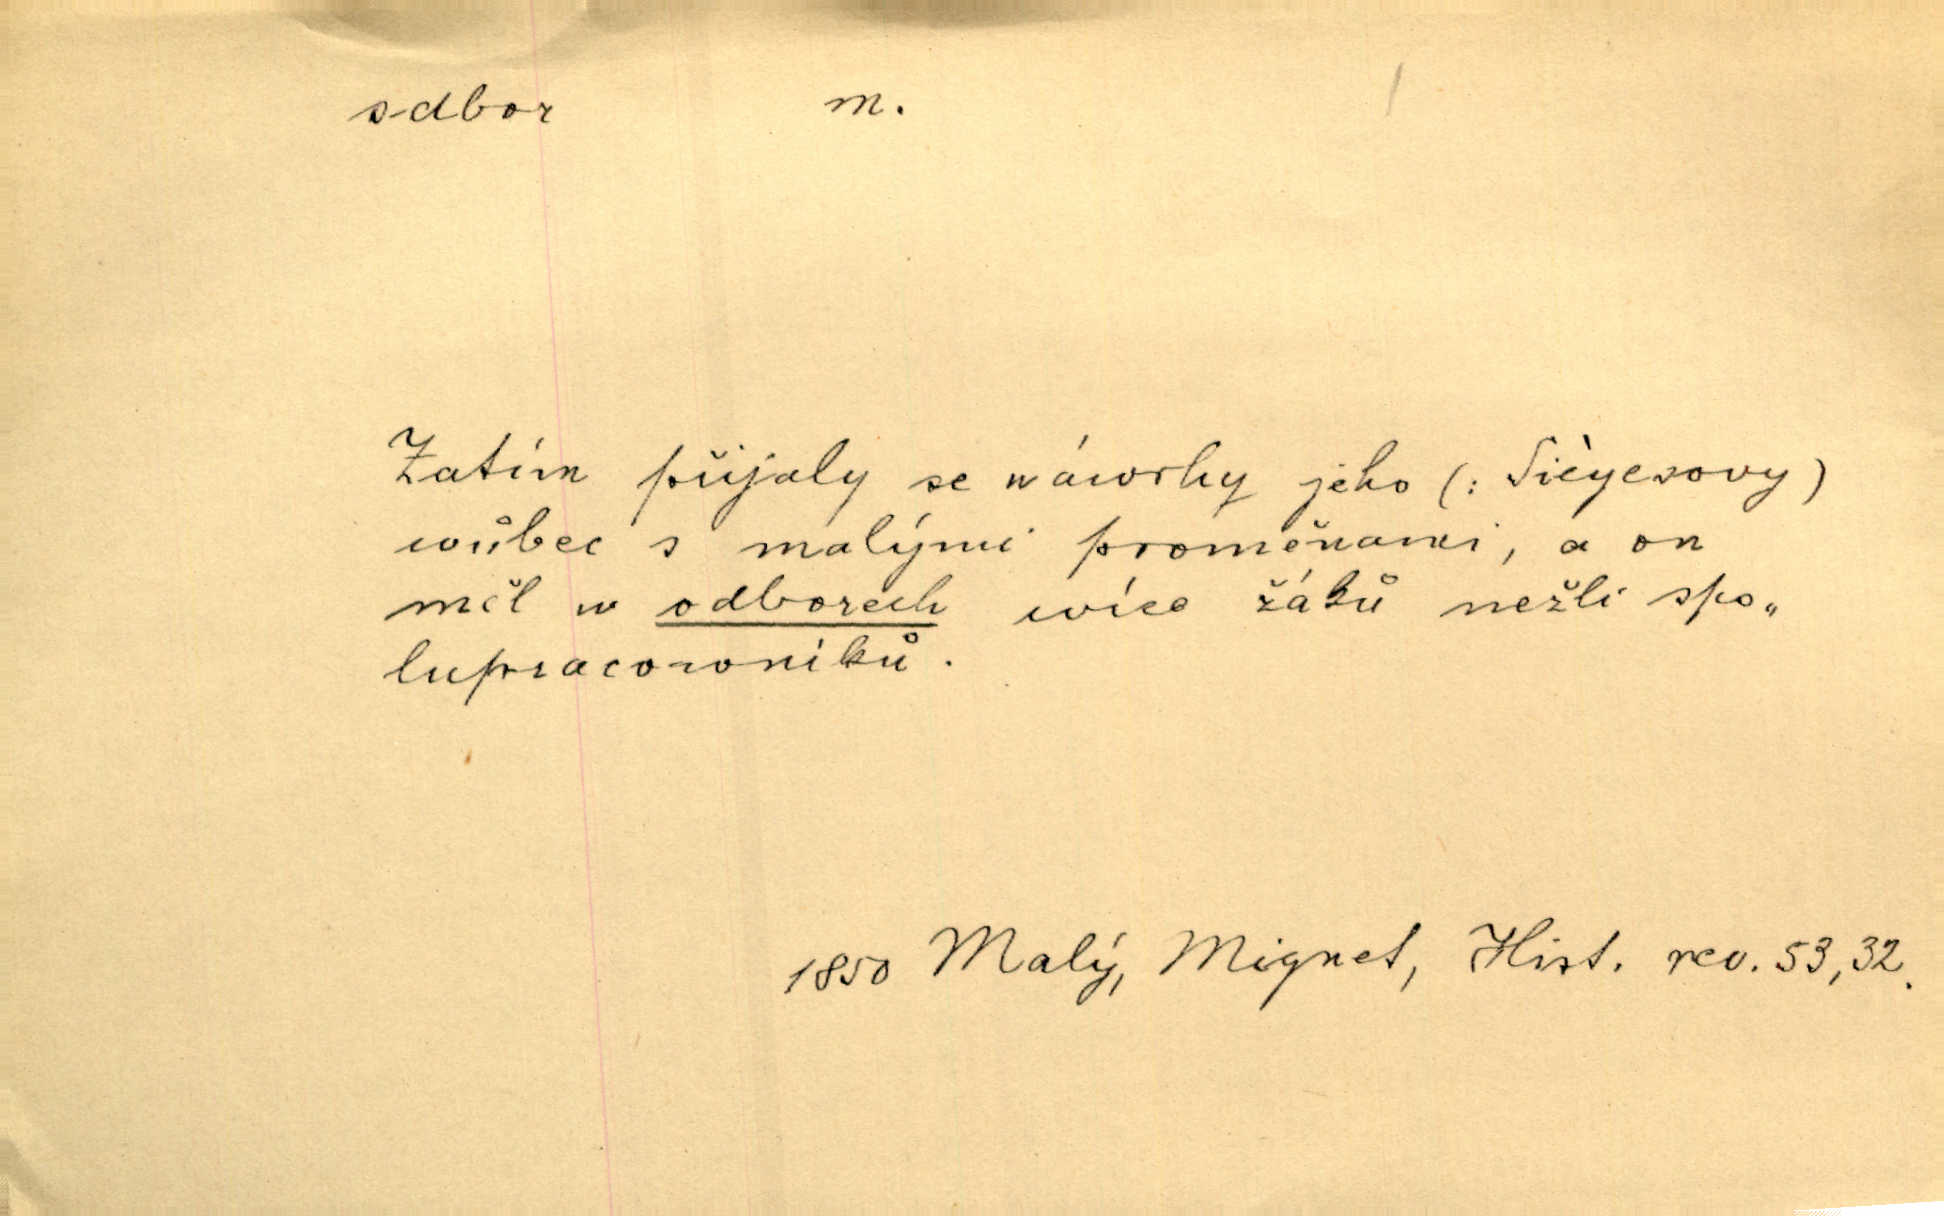 odbor m.
Zatím přijaly se náwrhy jeho (: Sièyesovy)
wůbec s malými proměnami, a on
měl w odborech wíce žáků nežli spo„
lupracowníků.
1850 Malý, Mignet, Hist. rev. 53,32.